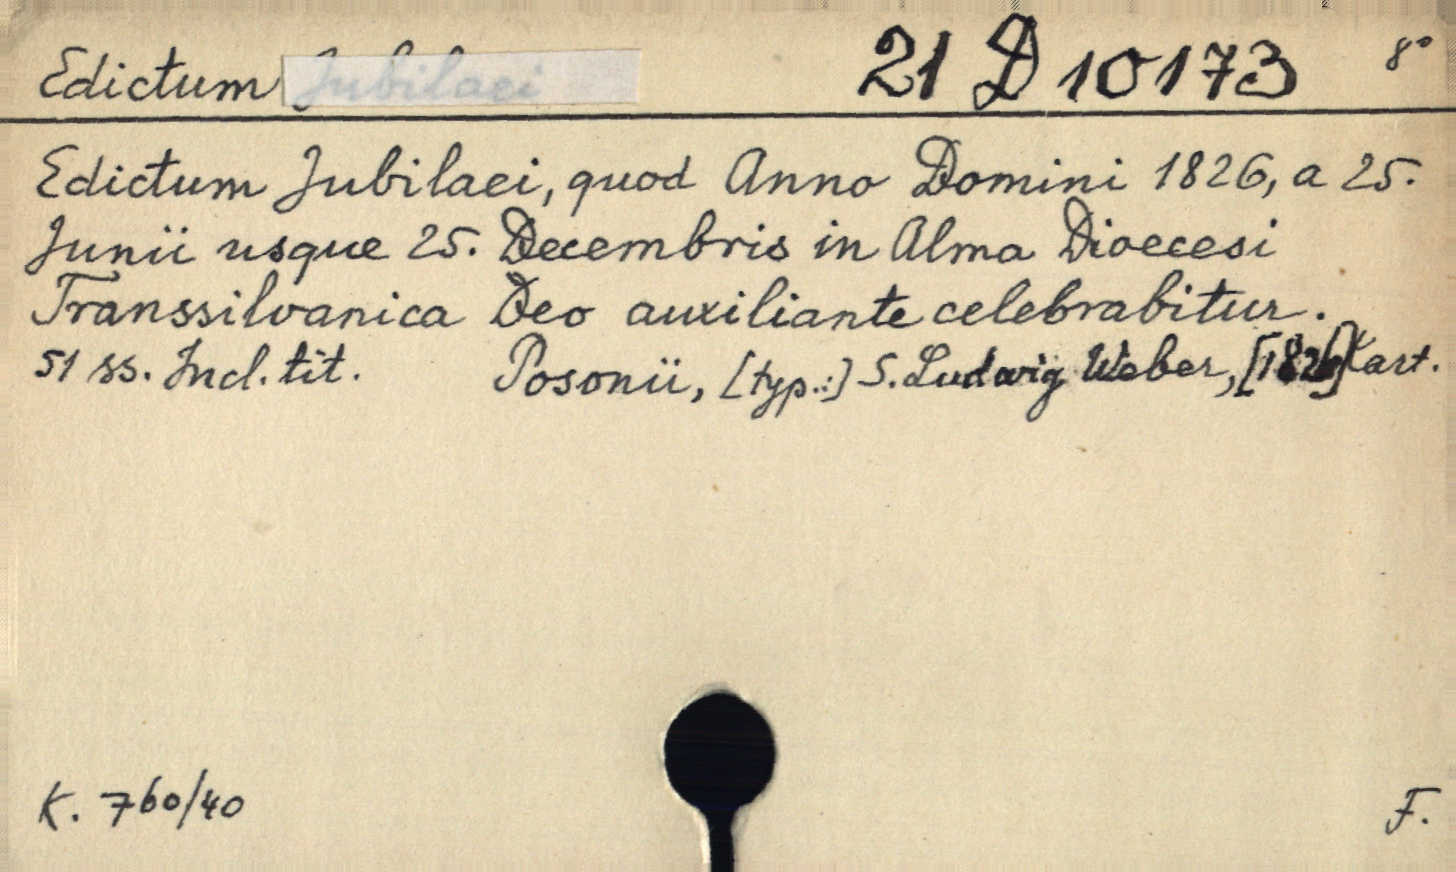 Edictum Jubilaei 21 D 10173 8°
Edictum Jubilaei, quod Anno Domini 1826, a 25.
Junii usque 25. Decembris in Alma Dioecesi
Transsilvanica Deo auxiliante celebrabitur.
51 ss. Incl. tit. Posonii, [typ.:] S. Ludwig Weber, [1826] Kart.
K. 760/40 F.